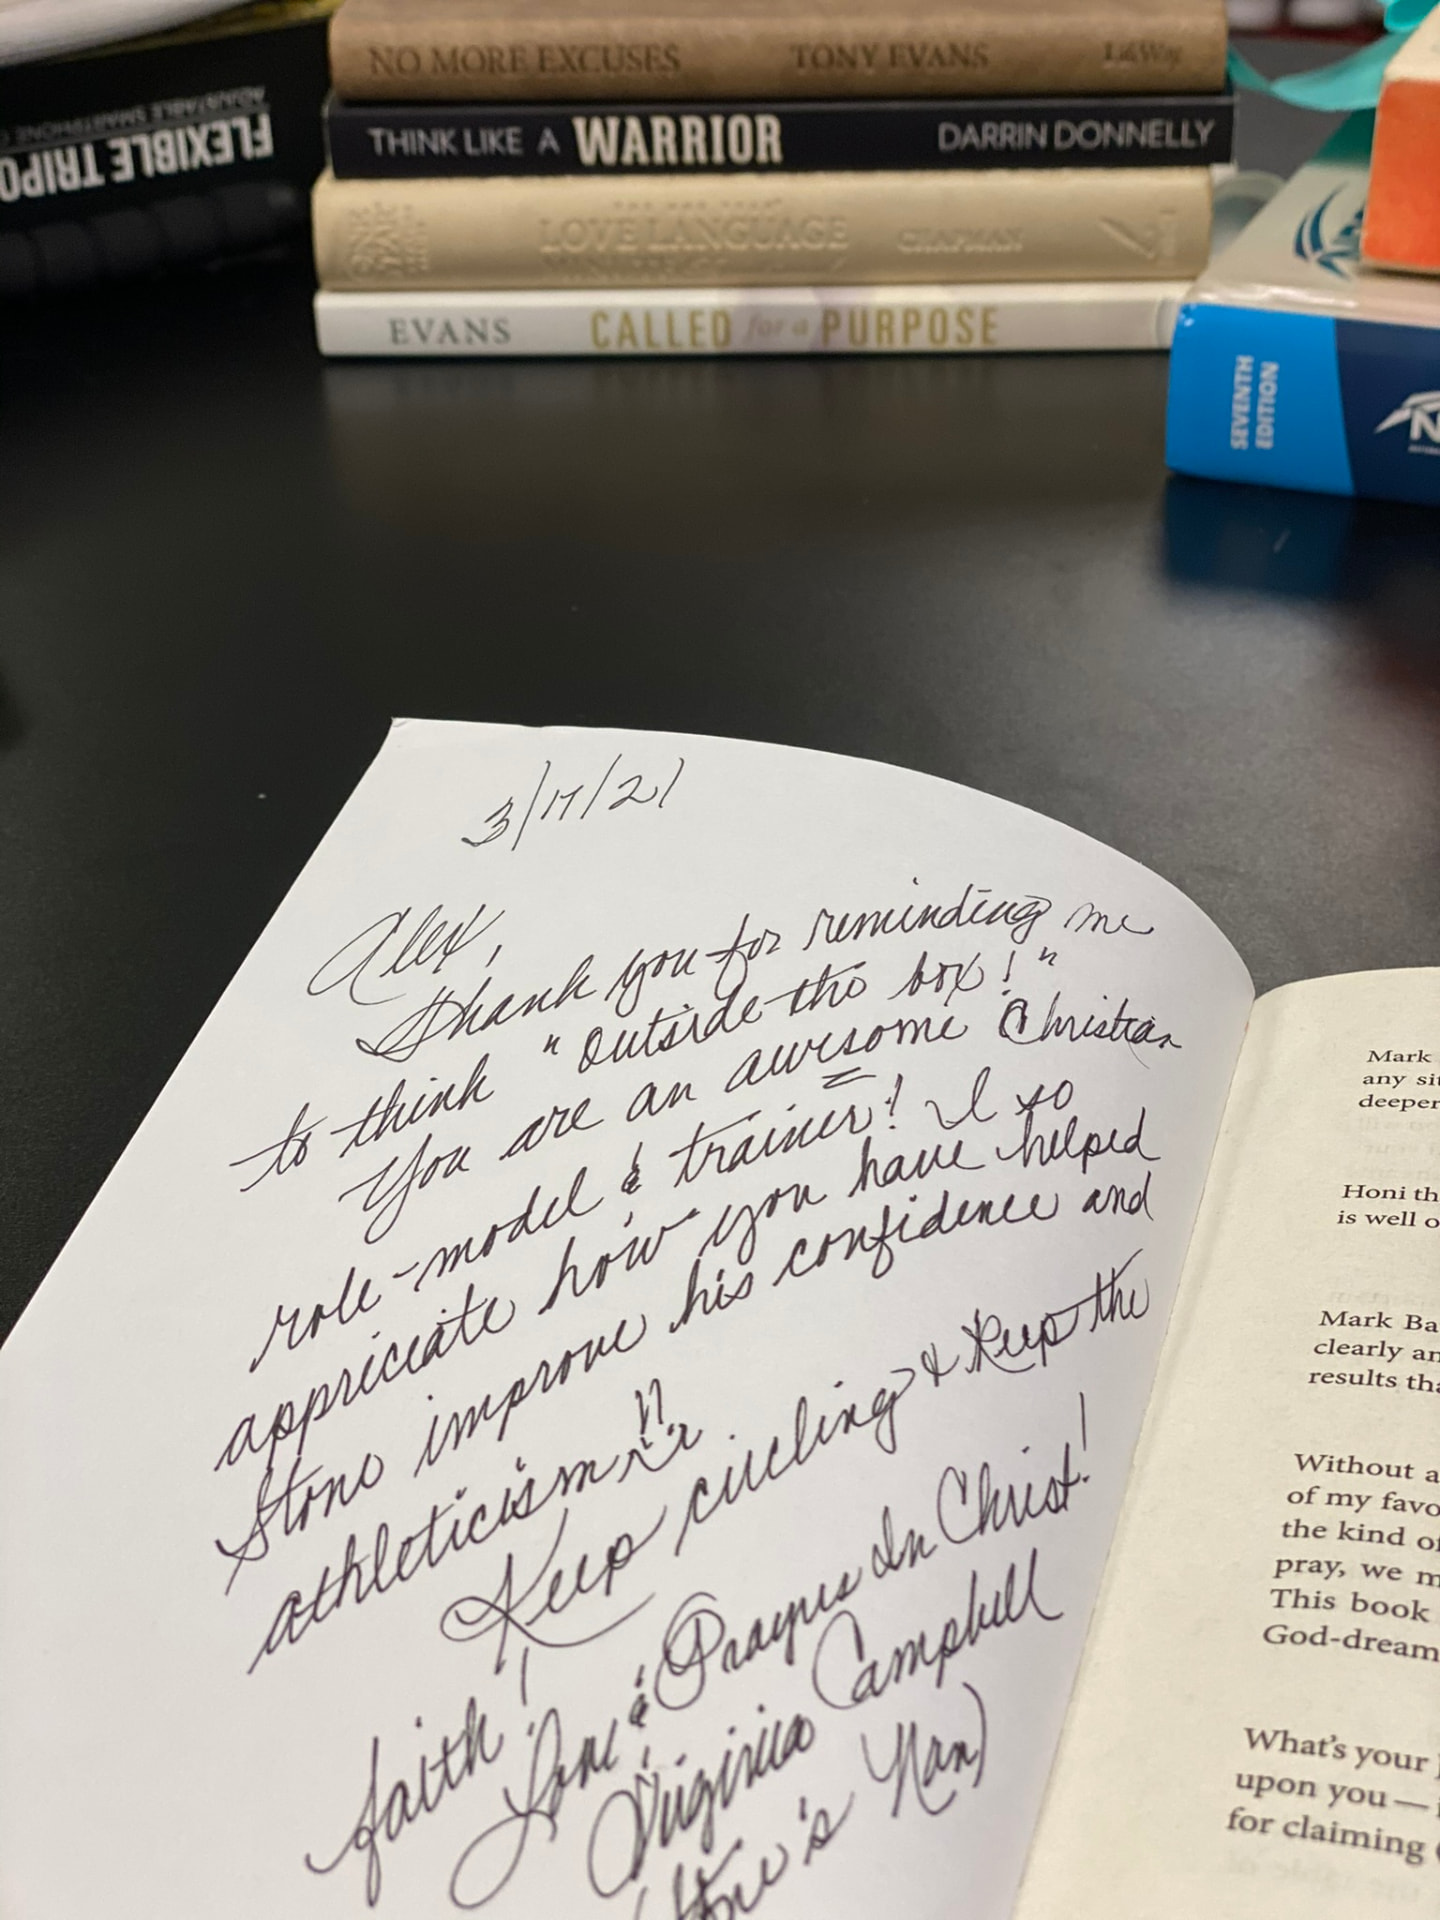 NO MORE EXCUSES TONY EVANS LifeWay
THINK LIKE A WARRIOR DARRIN DONNELLY
LOVE LANGUAGE CHAPMAN
EVANS CALLED for a PURPOSE
FLEXIBLE TRIPO
ADJUSTABLE SMARTPHONE
SEVENTH
EDITION
3/17/21
Alex,
Thank you for reminding me
to think "outside the box!"
You are an awesome Christian
role-model & trainer! I so
appriciate how you have helped
Stone improve his confidence and
athleticism!!
Keep circling & keep the
faith!
Love & Prayers In Christ!
Virginia Campbell
(Stone's Nan)
Mark
any sit
deeper
Honi th
is well o
Mark Ba
clearly an
results tha
Without a
of my favo
the kind of
pray, we m
This book
God-dream
What's your
upon you —
for claiming